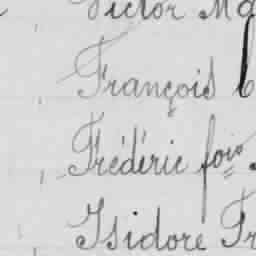 Victor Ma
François
Frédéric fois
Isidore Fr